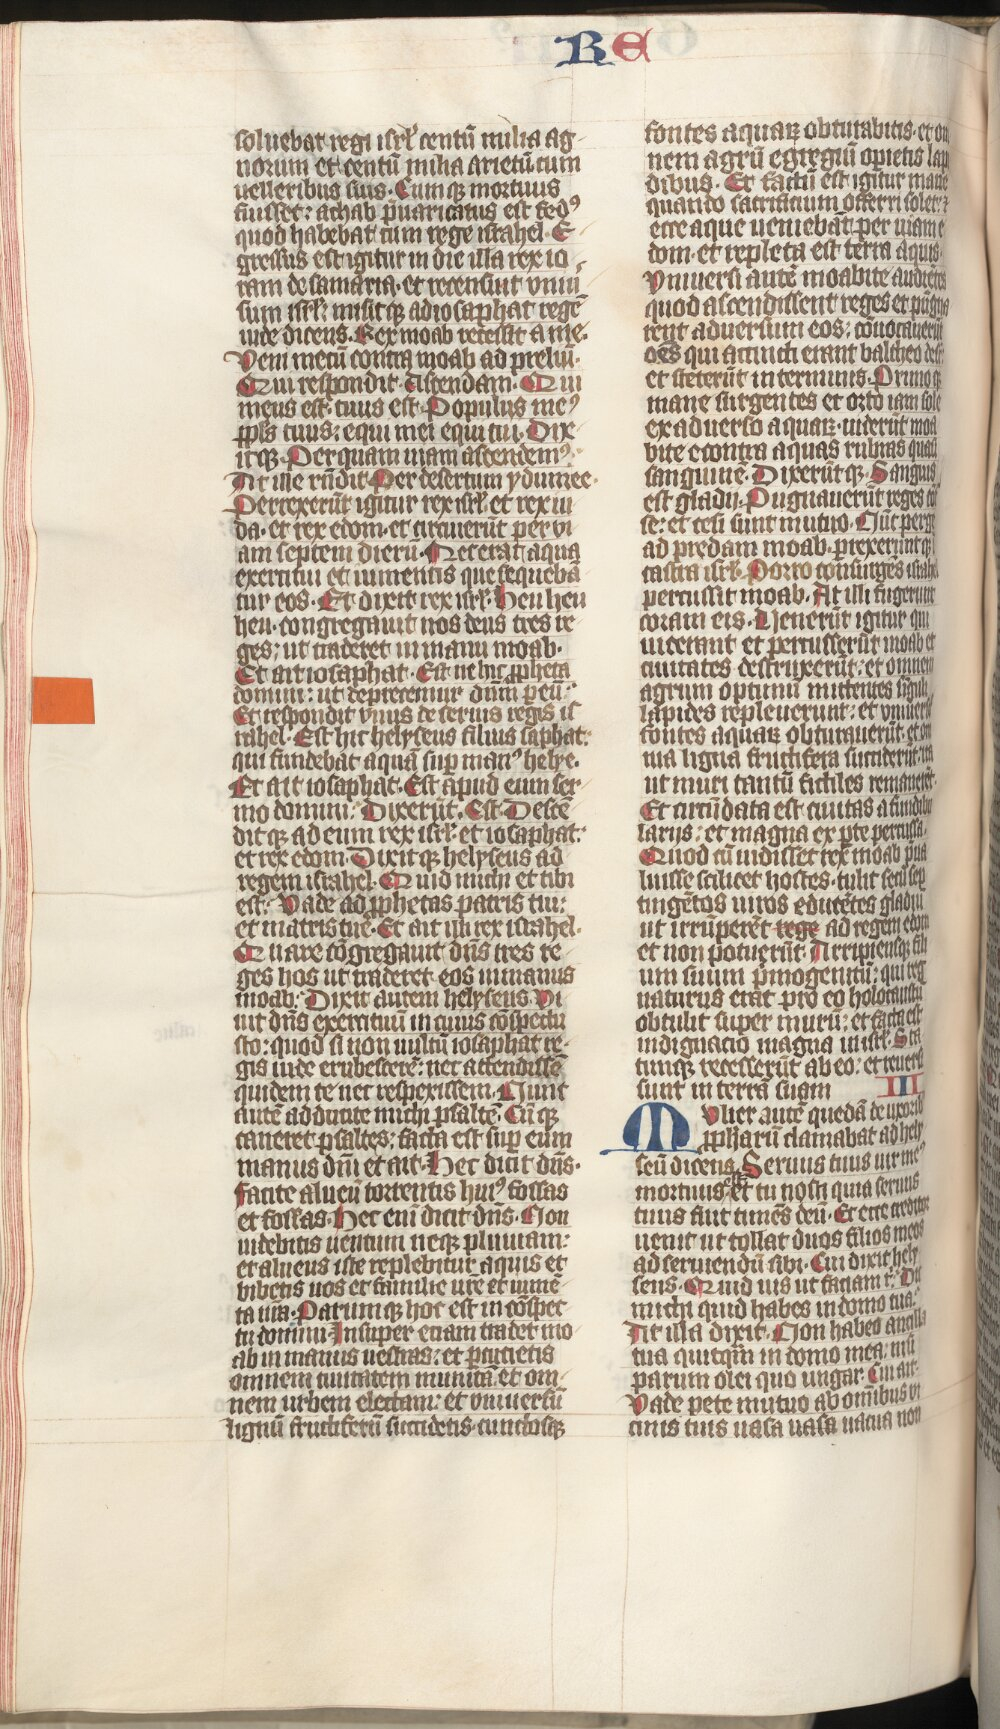 RE
soluebat regi isrl̄ centū milia ag-
norum et centū milia arietū cum
uelleribus suis. Cum qꝫ mortuus
fuisset: achab p̄uaricatus est fedꝰ
quod habebat cum rege israhel. E
gressus est igitur in die illa rex io
ram de samaria. et recensuit vniū
sum isrl̄: misit qꝫ ad iosaphat regē
iude dicens. Rex moab recessit a me.
Veni mecū contra moab ad preliū.
Qui respondit. Ascendam. Qui
meus est. tuus est. Populus meꝰ
ppl̄s tuus: equi mei equi tui. Dix
it qꝫ. Per quam uiam ascendemꝰ.
At ille rn̄dit Per desertum ydumee.
Perrexerūt igitur rex isrl̄. et rex iu
da. et rex edom. et circuierūt per vi
am septem dierū. Nec erat aqua
exercitui et iumentis que sequebā
tur eos. Et dixit rex isrl̄. Heu heu
heu. congregauit nos deus tres re
ges: ut traderet in manu moab.
Et ait iosaphat. Est ne hic ꝓpheta
domini: ut deprecemur dn̄m ꝑ eū:
Et respondit vnus de seruis regis is
rahel. Est hic helyseus filius saphat:
qui fundebat aquā sup̄ manꝰ helye.
Et ait iosaphat. Est apud eum ser
mo domini. Dixerūt. Est. Descē
dit qꝫ ad eum rex isrl̄. et iosaphat:
et rex edom. Dixit qꝫ helyseus ad
regem israhel. Quid michi et tibi
est: Vade ad ꝓphetas patris tui:
et matris tue. Et ait illi rex israhel.
Quare cōgregauit dn̄s tres re
ges hos ut traderet eos in manus
moab: Dixit autem helyseus. Vi
uit dn̄s exercituū in cuius cōspectu
sto: quod si non uultū iosaphat re-
gis iude erubescerē: nec attendissē
quidem te nec respexissem. Nunc
autē adducite michi psaltē. Cū qꝫ
caneret psaltes: facta est sup̄ eum
manus dn̄i et ait. Hec dicit dn̄s.
Facite alueū torrentis huiꝰ fossas
et fossas. Hec eni dicit dn̄s. Non
uidebitis uentum neqꝫ pluuiam:
et alueus iste replebitur aquis et
bibetis uos et familie vr̄e et iumē
ta vr̄a. Parum qꝫ hoc est in cōspec
tu domini. Insuper etiam tradet mo
ab in manus uestras: et ꝑcutietis
omnem ciuitatem munitā et om-
nem urbem electam: et vniuersū
lignū fructiferū succidetis. cunctosqꝫ
fontes aquaꝝ obturabitis. et om
nem agrū egregiū opietis lapi
dibus. Et factū est igitur mane
quando sacrificium offerri solet: ⁊
ecce aque ueniebāt per uiam e
dom. et repleta est terra aquis.
Vniuersi autē moabite audientes
quod ascendissent reges et pugna
rent aduersum eos: cōuocauerūt
oēs qui accincti erant balcheo desr
et steterūt in terminis. Primo qꝫ
mane surgentes et orto iam sole
ex aduerso aquaꝝ. uiderūt moa
bite econtra aquas rubras quasi
sanguinē. Dixerūt qꝫ. Sanguis
est gladii. Pugnauerūt reges cō
se: et cesi sunt mutuo. Nūc perge
ad predam moab. ꝑrexerunt qꝫ
castra isrl̄. Porro consurgēs israhel
percussit moab. At illi fugerunt
coram eis. Uenerūt igitur qui
uicerant et percusserūt moab et
ciuitates destruxerūt: et omnem
agrum optimū mittentes singuli
lapides repleuerunt: et vniuersos
fontes aquaꝝ obturauerūt. et om
nia ligna fructifera succiderūt. ita
ut muri tantū fictiles remanerēt.
Et circūdata est ciuitas a fundibu
lariis: et magna ex ꝑte percussa.
Quod cū uidisset rex moab p̄ua
luisse scilicet hostes. tulit secū sep
tingētos uiros educētes gladiū
ut irrūperēt rege ad regem edom
et non potuerūt. Arripiensqꝫ fili
um suum p̄mogenitū: qui reg
naturus erat pro eo holocaustū
obtulit super murū: et facta est
indignacio magna in isrl̄. Sta
timqꝫ recesserūt ab eo: et reuersi
sunt in terrā suam
IIII
Mvlier autē quedā de uxoribꝰ
ꝓpharū clamabat ad hely
seū dicens. Seruus tuus uir meꝰ
mortuus est et tu nosti quia seruus
tuus fuit timēs deū. Et ecce creditor
uenit ut tollat duos filios meos
ad seruiendū sibi. Cui dixit hely
seus. Quid uis ut faciam t̄. Dic
michi quid habes in domo tua.
At illa dixit. Non habeo ancilla
tua quicqm̄ in domo mea: nisi
parum olei quo ungar. Cui ait.
Vade pete mutuo ab omībus vi
cinis tuis uasa uasa uacua non